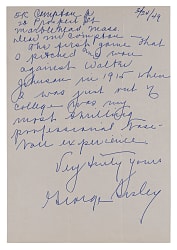 5/20/49
St.
Marblehead Mass.
Dear Mr Compton
The first game that
I pitched & won
against Walter
Johnson in 1915 when
I was just out of
college was my
most thrilling
professional base-
ball experience.
Very truly yours
George Sisler